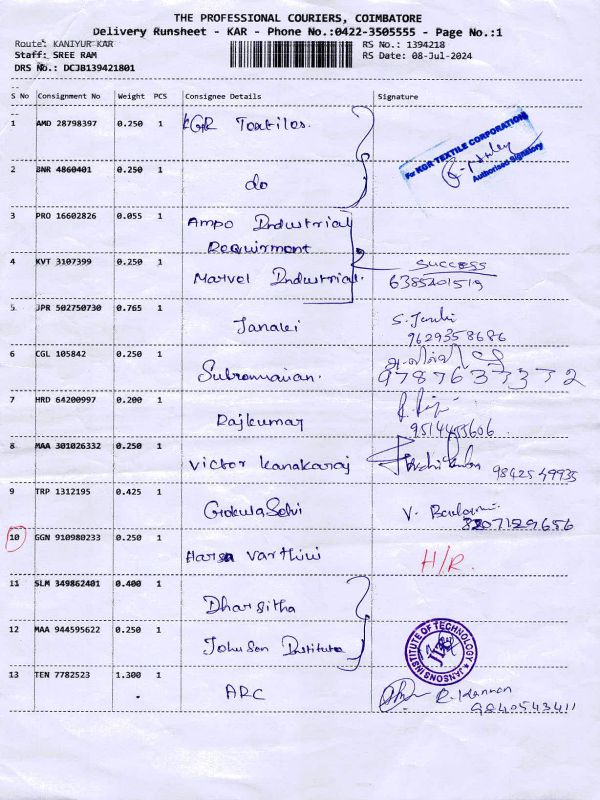 THE PROFESSIONAL COURIERS, COIMBATORE
Delivery Runsheet - KAR - Phone No.:0422-3505555 - Page No.:1
Route: KANIYUR KAR
RS No.: 1394218
Staff: SREE RAM
RS Date: 08-Jul-2024
DRS No.: DCJB139421801
S No Consignment No Weight PCS Consignee Details Signature
1 AMD 28798397 0.250 1 KGR Textiles.
For KGR TEXTILE CORPORATION
Authorised Signatory
2 BNR 4860401 0.250 1 do
3 PRO 16602826 0.055 1 Ampo Industrial
Requirment
4 KVT 3107399 0.250 1 Marvel Industrial. SUCCESS
6385201519
5 JPR 502750730 0.765 1 Janaki
9629358686
6 CGL 105842 0.250 1 Subramanian.
9787637372
7 HRD 64200997 0.200 1 Rajkumar
9514455606
8 MAA 301026332 0.250 1 Victor Kanakaraj 9842549935
9 TRP 1312195 0.425 1 GokulaSelvi V.
8207129656
10 GGN 910980233 0.250 1 Harsa Varthini H/R.
11 SLM 349862401 0.400 1 Dharsitha
12 MAA 944595622 0.250 1 Johnson Institute
JANSONS INSTITUTE OF TECHNOLOGY
JIT
13 TEN 7782523 1.300 1 ARC R. Kannan
9840543411